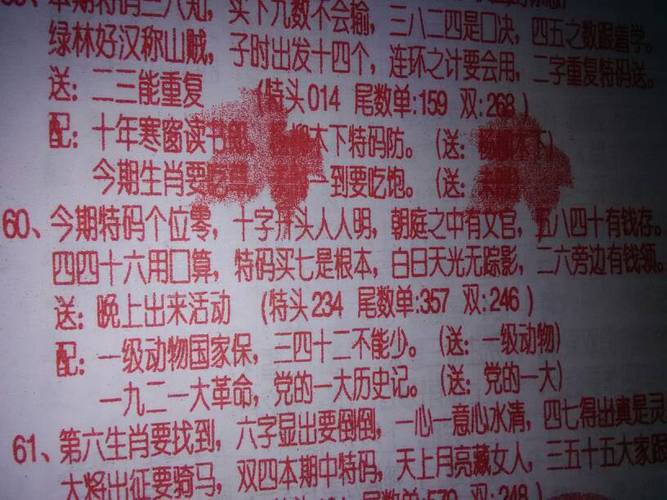 本期特码三八知，买下九数不会输，三八二四是口决，四五之数跟着学。
绿林好汉称山贼，子时出发十四个，连环之计要会用，二字重复特码送。
送：二三能重复 (特头014 尾数单:159 双:268)
配：十年寒窗读书 木下特码防。(送： 天下)
今期生肖要 一到要吃饱。(送：
60、今期特码个位零，十字开头人人明，朝庭之中有文官，五八四十有钱存。
四四十六用口算，特码买七是根本，白日天光无踪影，二六旁边有钱领。
送：晚上出来活动 (特头234 尾数单:357 双:246)
配：一级动物国家保，三四十二不能少。(送：一级动物)
一九二一大革命，党的一大历史记。(送：党的一大)
61、第六生肖要找到，六字显出要倒倒，一心一意心水清，四七得出真是灵
大将出征要骑马，双四本期中特码，天上月亮藏女人，三五十五大家